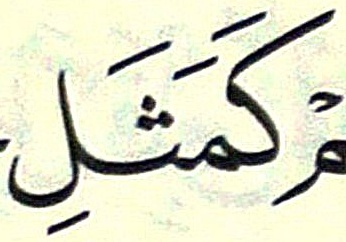 مْ كَمَثَلِ